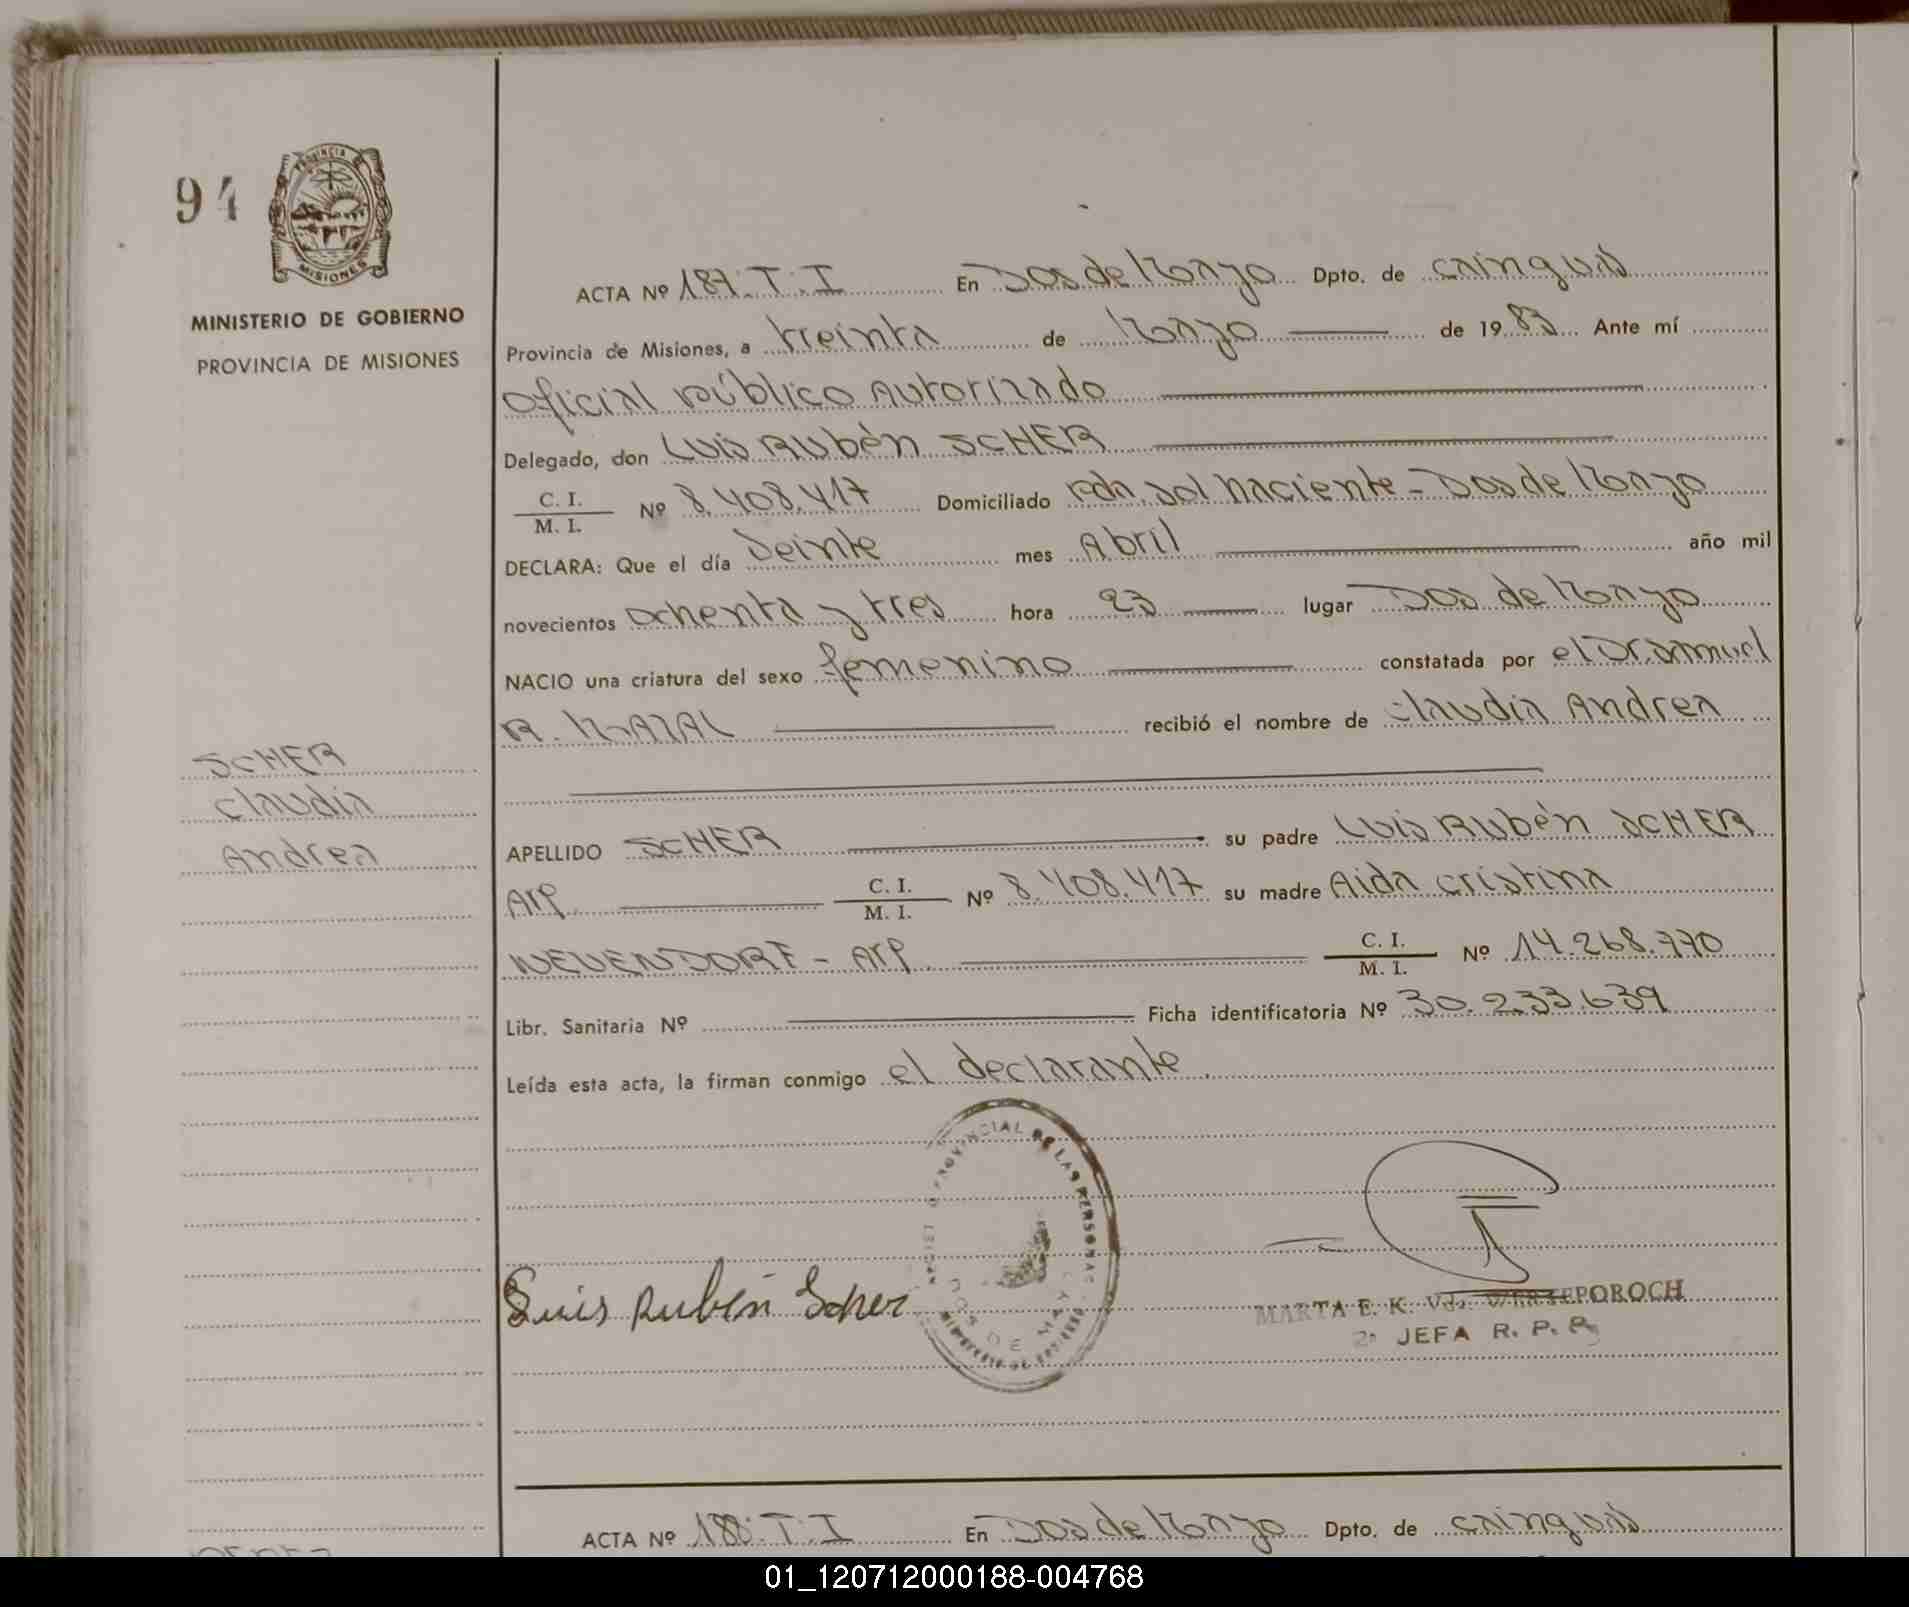 94
PROVINCIA DE
MISIONES
MINISTERIO DE GOBIERNO
PROVINCIA DE MISIONES
SCHER
Claudia
Andrea
ACTA Nº 187. T. I En Dos de Mayo Dpto. de Cainguás
Provincia de Misiones, a treinta de Mayo de 1983 Ante mí
Oficial Público Autorizado
Delegado, don Luis Rubén SCHER
C. I.
M. I. Nº 8.408.417 Domiciliado Pda. Sol Naciente - Dos de Mayo
DECLARA: Que el día veinte mes Abril año mil
novecientos ochenta y tres hora 23 lugar Dos de Mayo
NACIO una criatura del sexo femenino constatada por el Dr. Samuel
R. MAZAL recibió el nombre de Claudia Andrea
APELLIDO SCHER su padre Luis Rubén SCHER
Arg. C. I.
M. I. Nº 8.408.417 su madre Aida Cristina
NEUENDORF - Arg. C. I.
M. I. Nº 14.268.770
Libr. Sanitaria Nº Ficha identificatoria Nº 30.233.639
Leída esta acta, la firman conmigo el declarante.
PROVINCIAL DE LAS PERSONAS
DOS DE MAYO
MINISTERIO DE GOBIERNO
Luis Rubén Scher
MARTA E. K. Vda. SEPOROCH
2ª JEFA R. P. P.
ACTA Nº 188. T. I En Dos de Mayo Dpto. de Cainguás
01_120712000188-004768